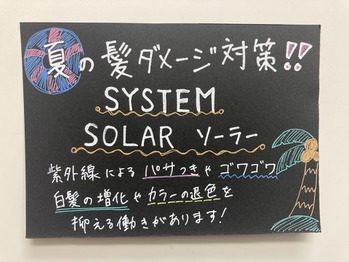 夏の髪ダメージ対策!!
SYSTEM
SOLAR ソーラー
紫外線による パサつきや ゴワゴワ
白髪の増化や カラーの退色を
抑える働きがあります!